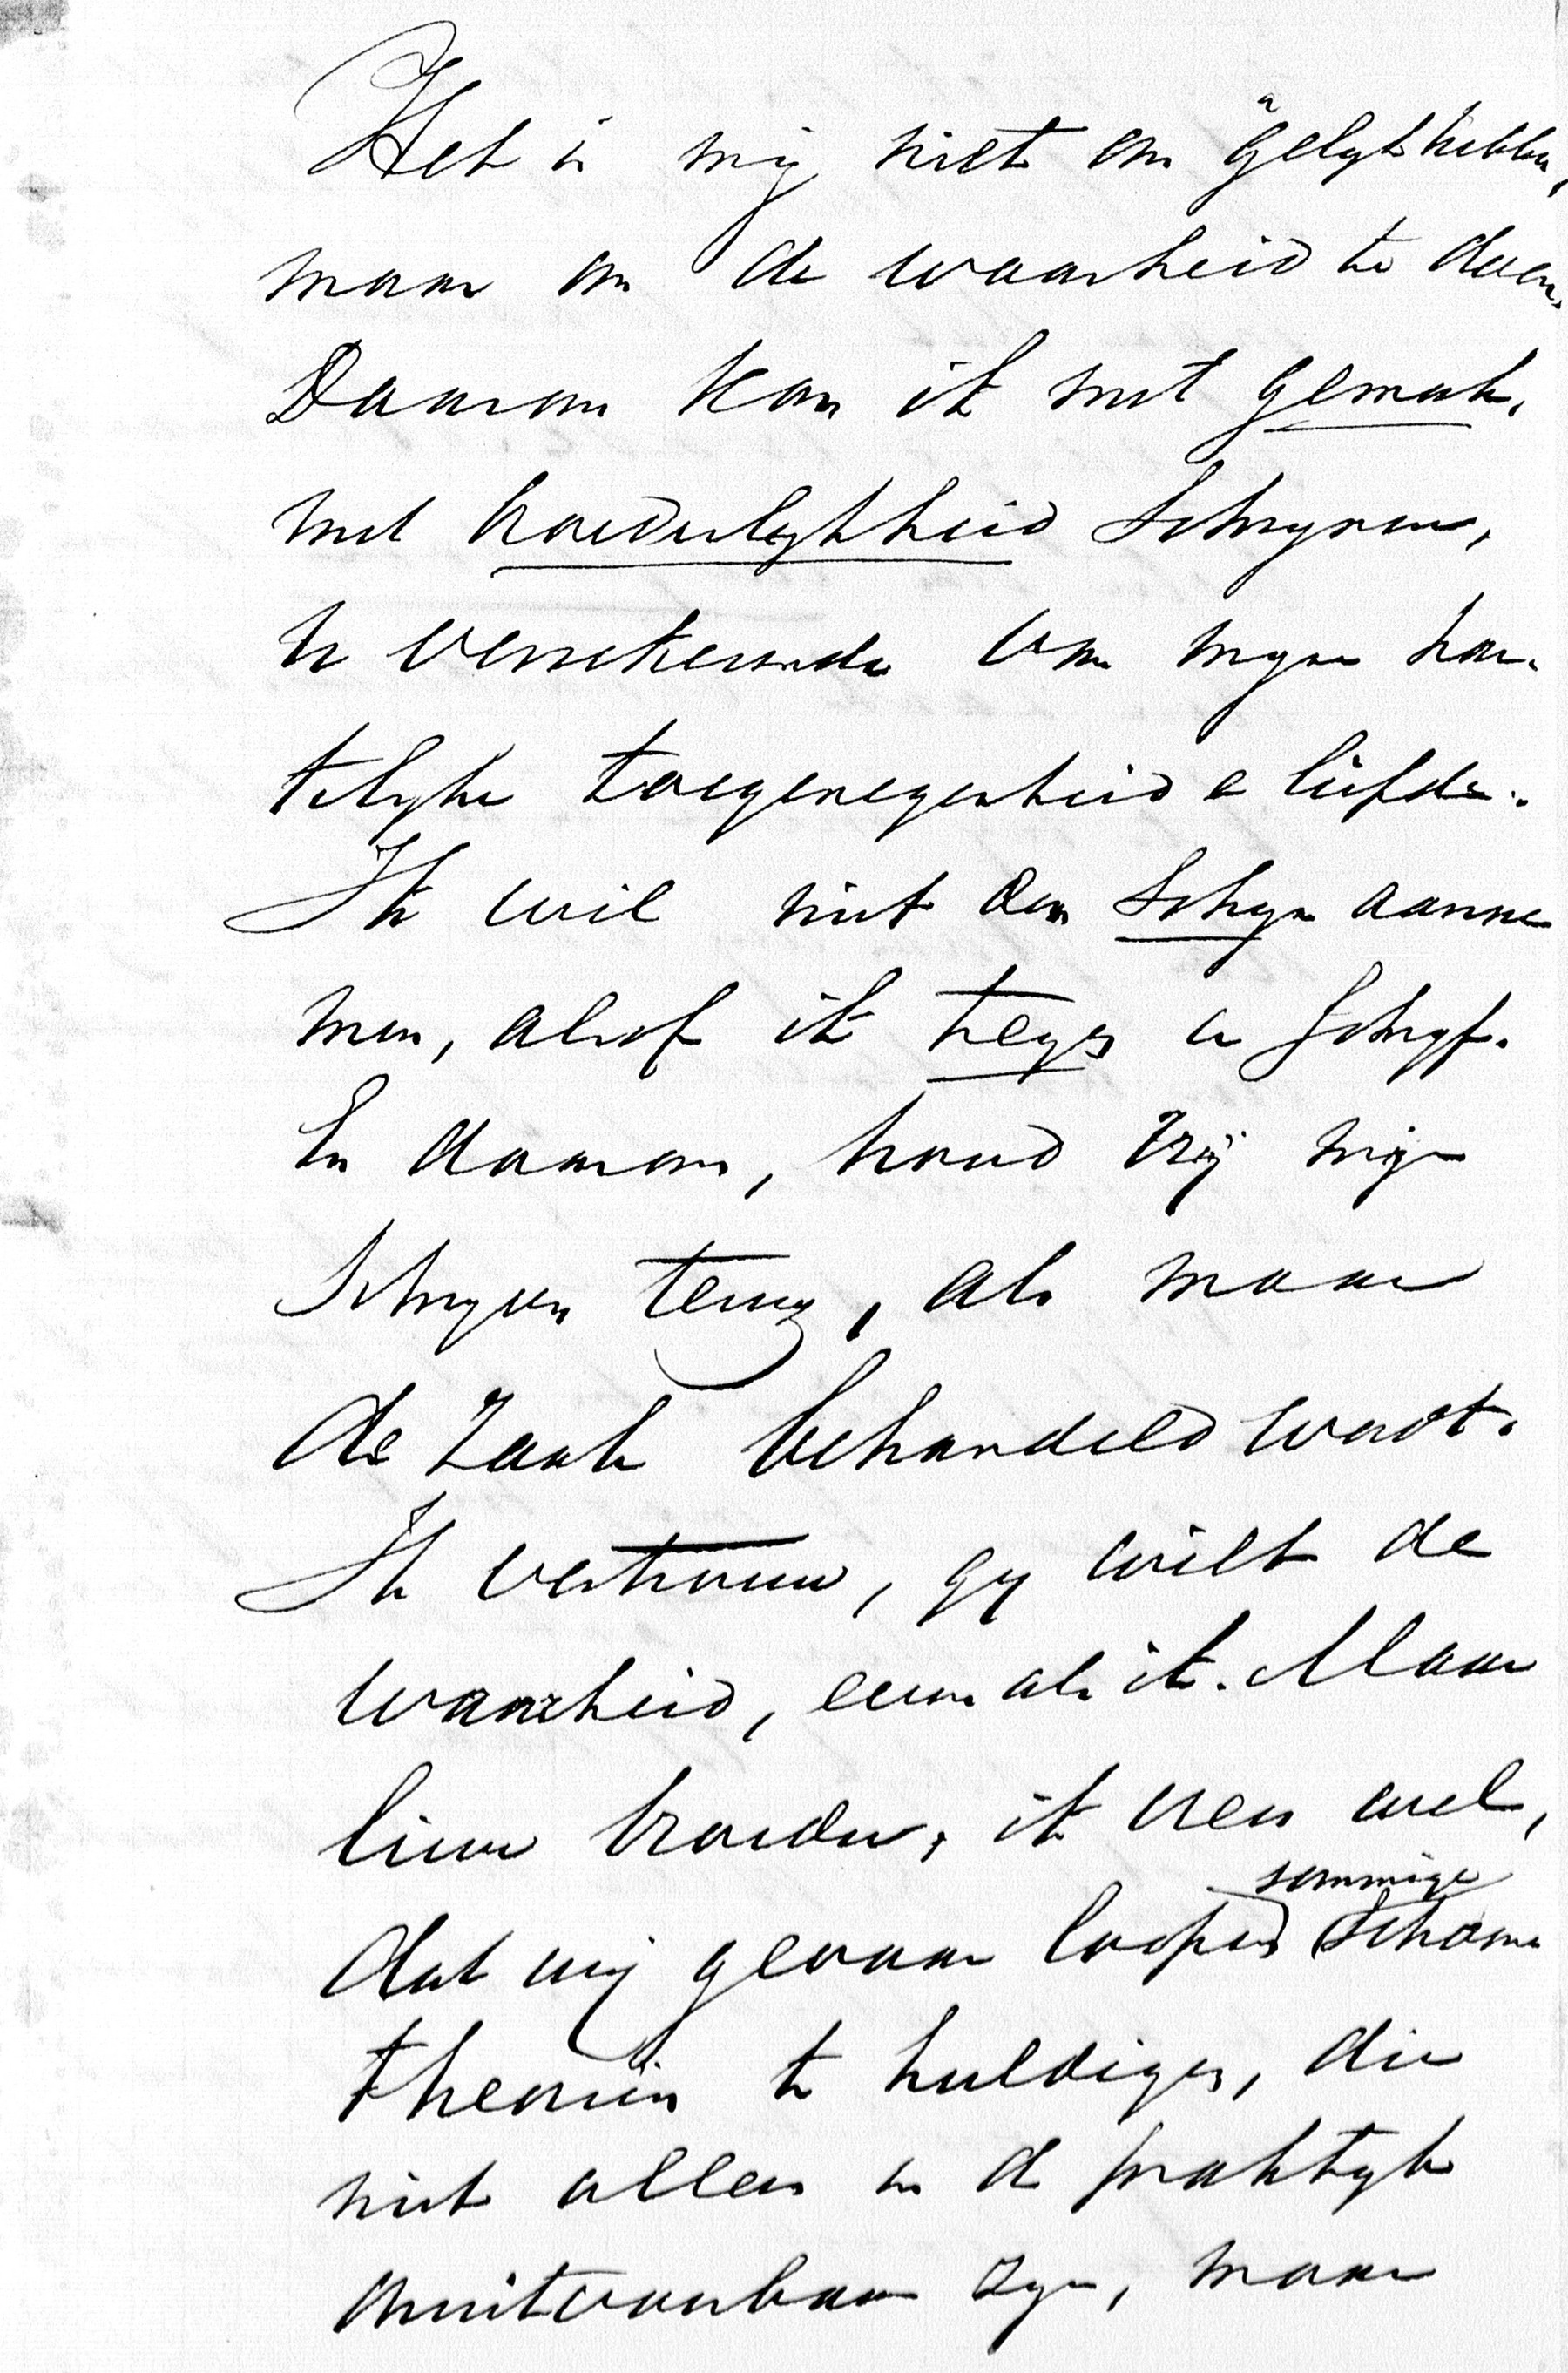 Het is mij niet om "gelyk hebben",
maar om de waarheid te doen.
Daarom kan ik met gemak,
met broederlykheid schryven,
u verzekerende van myne har-
telyke toegenegenheid e liefde.
Ik wil niet den schyn aanne
men, alsof ik tegen u schryf.
En daarom, houd vrij mijn
schryven terug, als maar
de zaak behandeld wordt.
Ik vertrouw, gy wilt de
waarheid, evenals ik. Maar
lieve broeder, ik vrees wel,
dat wij gevaar loopen sommige schoone
theoriën te huldigen, die
niet alleen in de praktyk
onuitvoerbaar zyn, maar